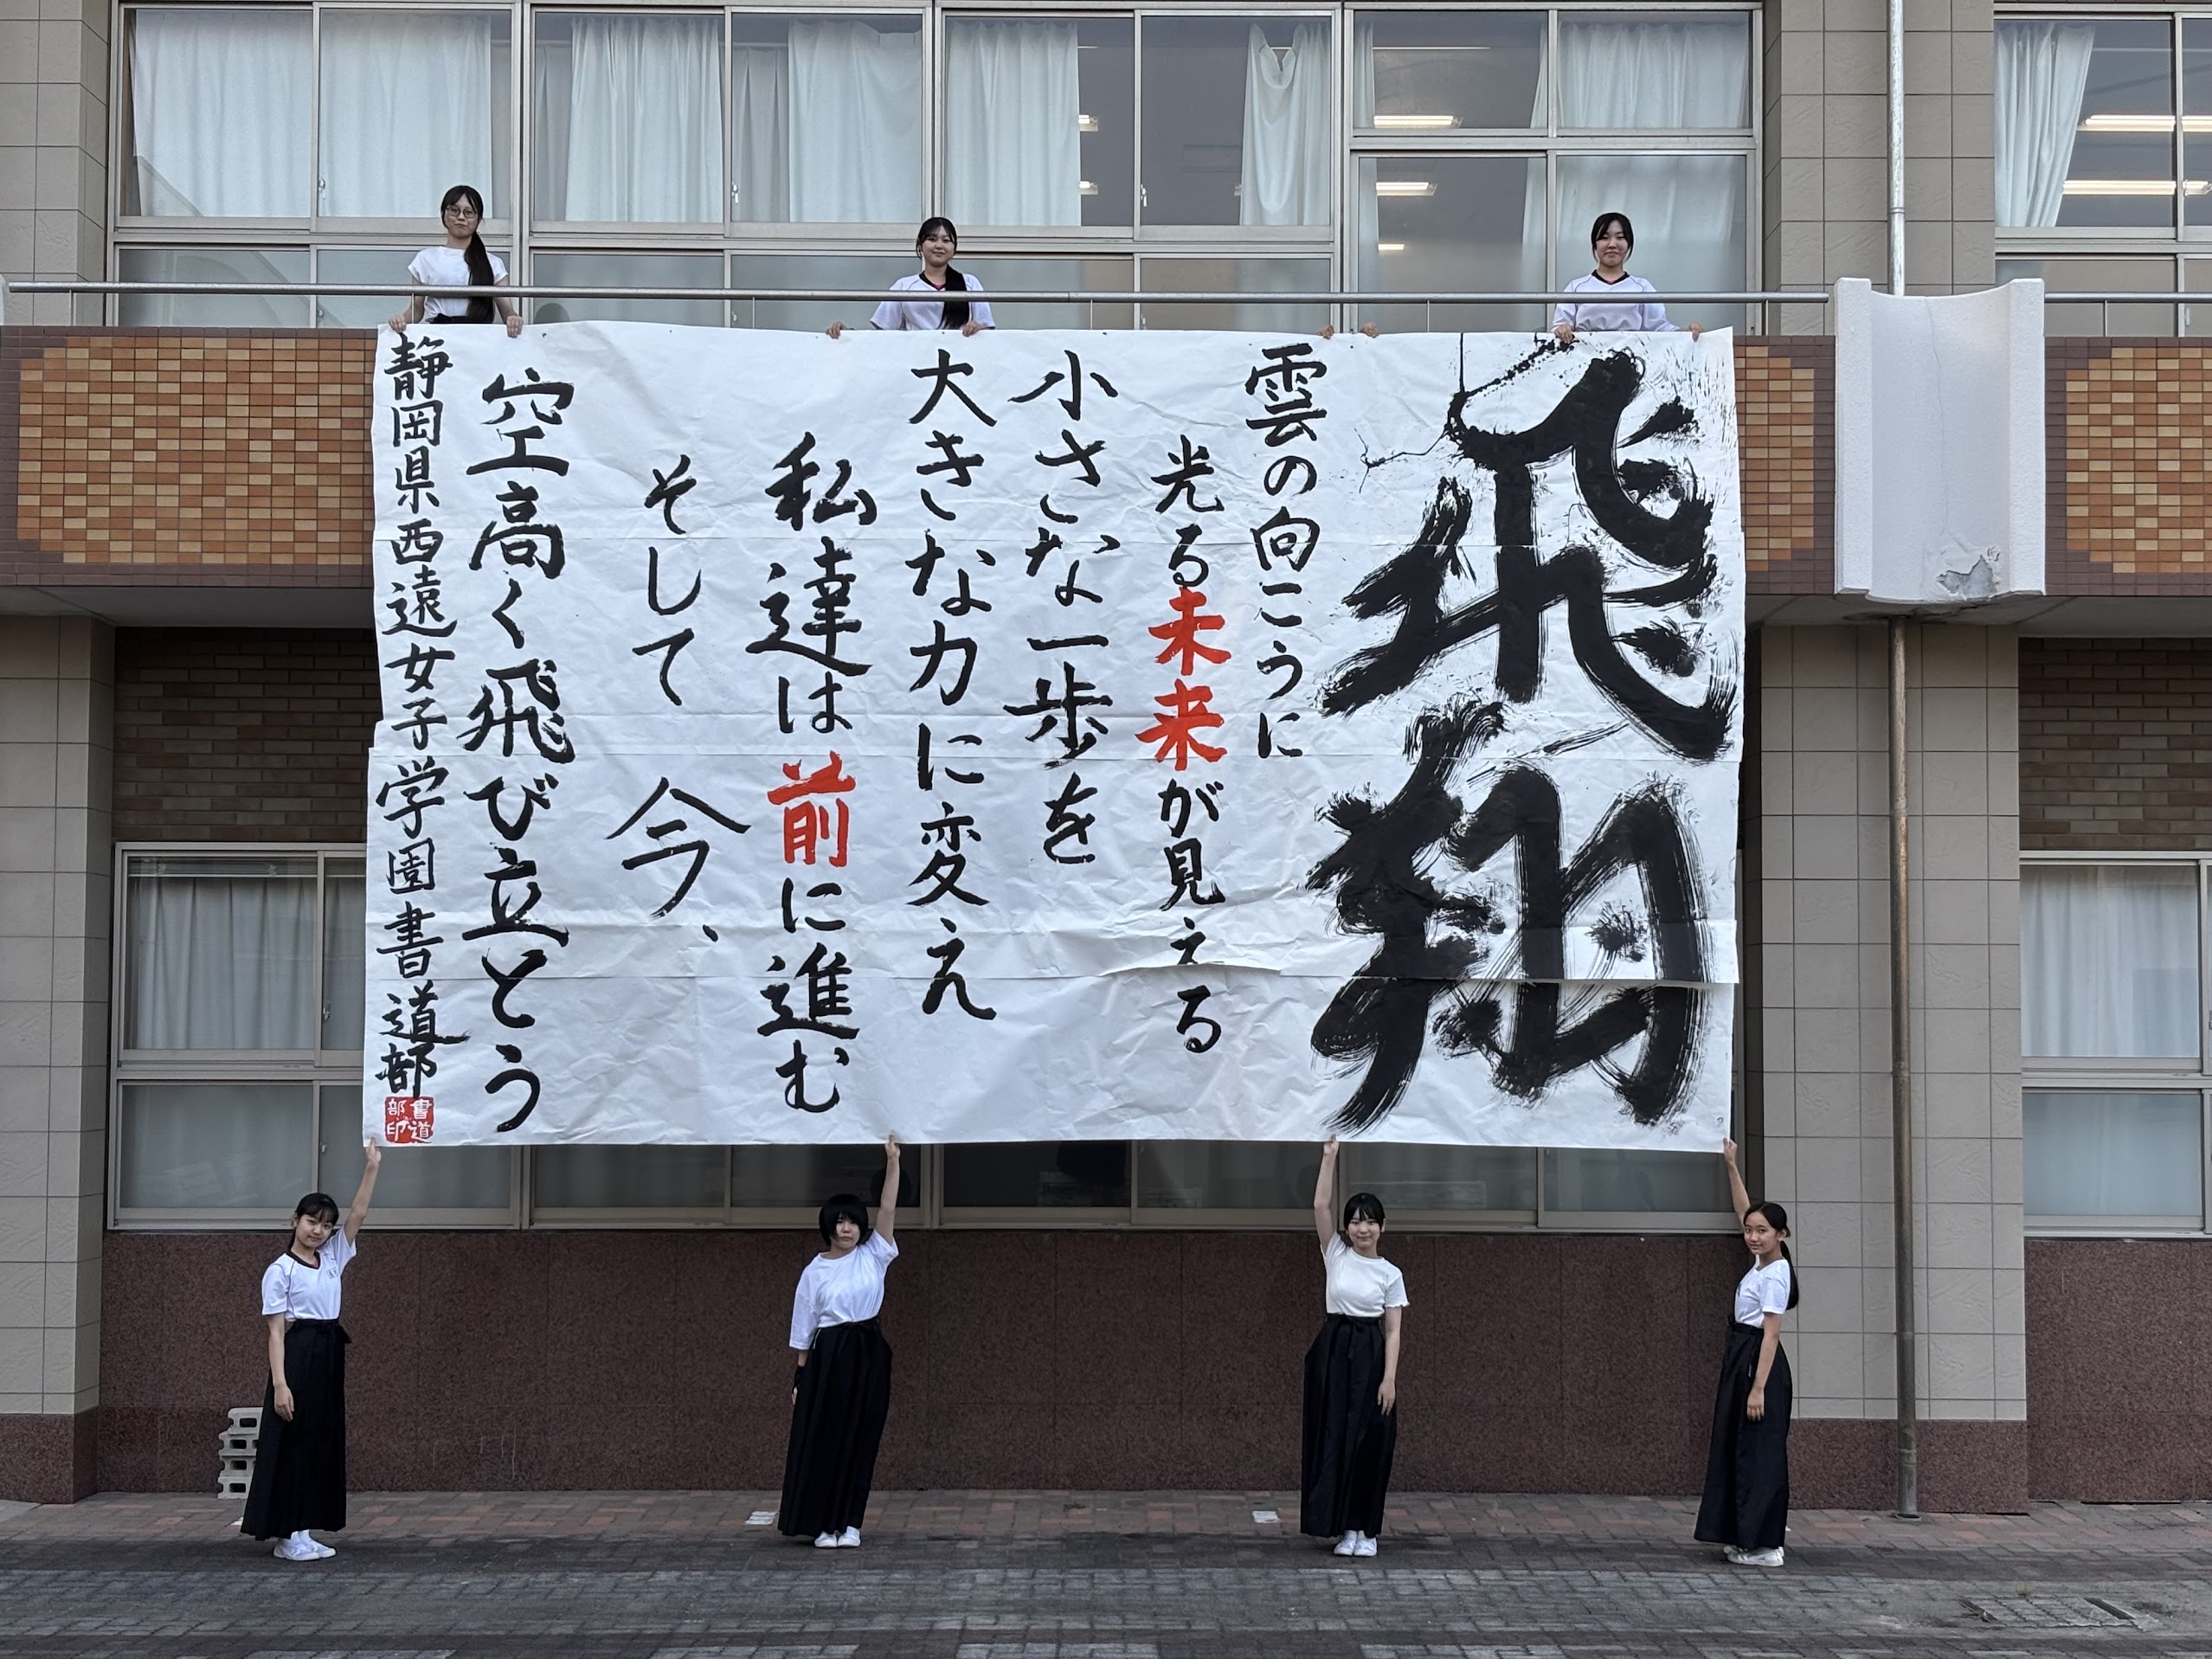 飛翔
雲の向こうに
光る未来が見える
小さな一歩を
大きな力に変え
私達は前に進む
そして今、
空高く飛び立とう
静岡県西遠女子学園書道部
書道
部印